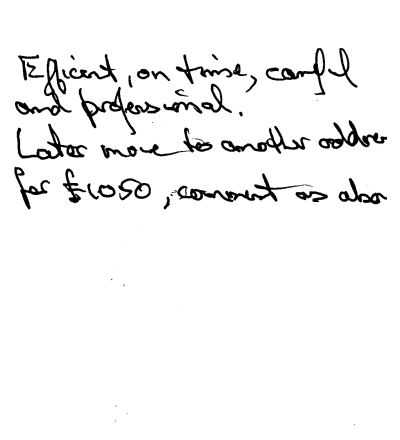 Efficient, on time, careful
and professional.
Later move to another addre
for £1050, comment as abo